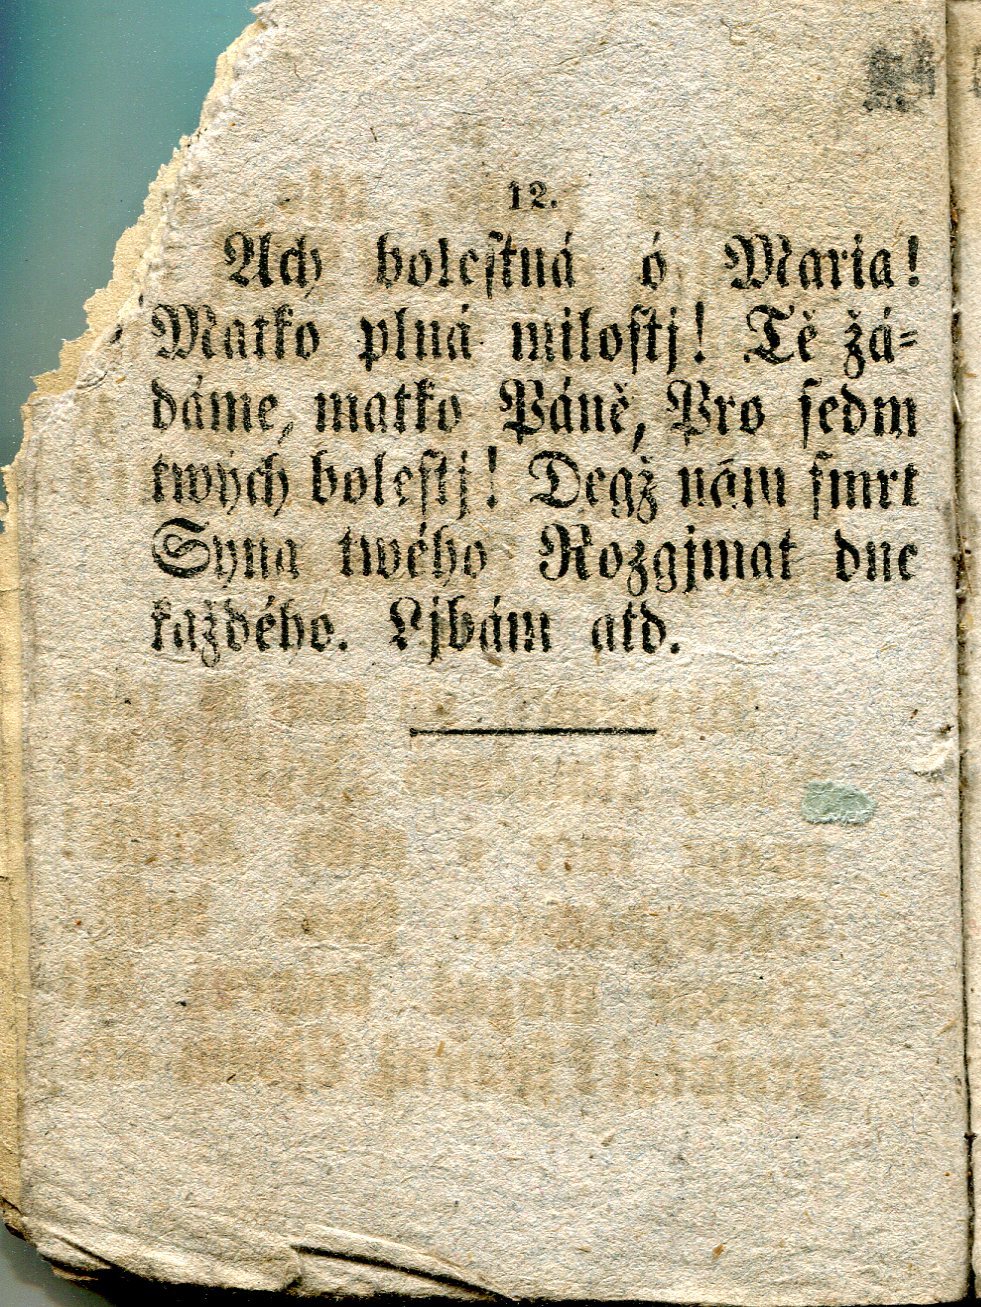 12.
Ach bolestná ó Maria!
Matko plná milostj! Tě žá-
dáme, matko Páně, Pro sedm
twých bolestj! Degž nám smrt
Syna twého Rozgjmat dne
každého. Ljbám atd.